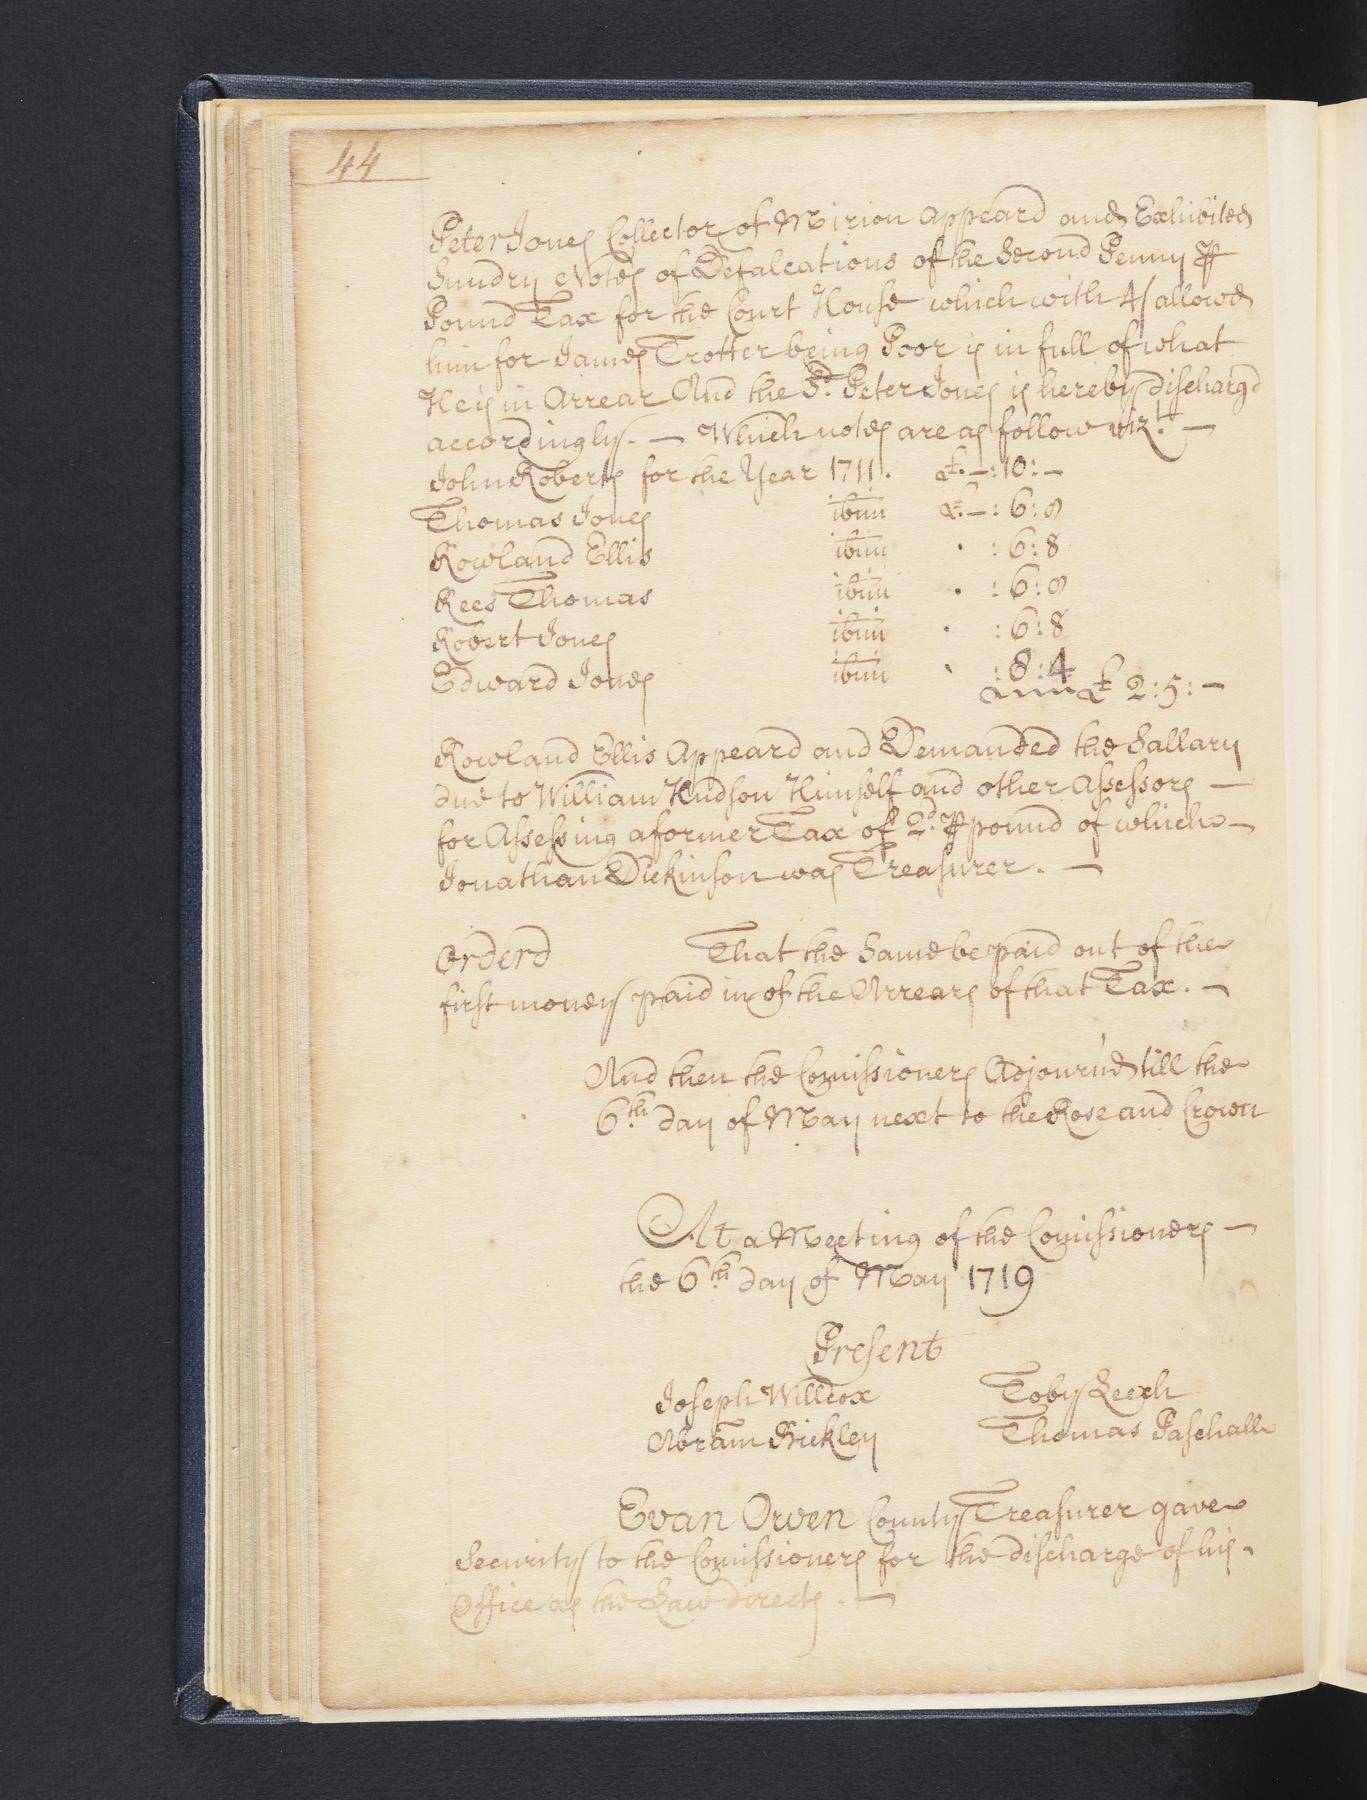 44
Peter Jones Collector of Mirion Appeard and Exhibited
Sundry Notes of Defalcations of the Second Penny ⅌
Pound Tax for the Court House which with 4/ allowd
him for James Trotter being Poor is in full of what
He is in Arrear And the Sd. Peter Jones is hereby dischargd
accordingly. — Which notes are as follow vizt. —
John Roberts for the Year 1711. £ - : 10 : -
Thomas Jones ibim £ - : 6 : 8
Rowland Ellis ibim : 6 : 8
Rees Thomas ibim : 6 : 8
Robert Jones ibim : 6 : 8
Edward Jones ibim : 8 : 4
£ 2 : 5 : -
Rowland Ellis Appeard and Demanded the Sallary
due to William Hudson Himself and other Assessors —
for Assessing a former Tax of 2d. ⅌ pound of which —
Jonathan Dickinson was Treasurer. —
Orderd That the Same be paid out of the
first moneys paid in of the Arrears of that Tax. —
And then the Comissioners Adjourn'd till the
6th day of May next to the Rose and Crown
At a Meeting of the Comissioners —
the 6th day of May 1719
Present
Joseph Willcox Toby Leech
Abram Bickley Thomas Paschall
Evan Owen County Treasurer gave
Security to the Comissioners for the discharge of his
Office as the Law directs. —